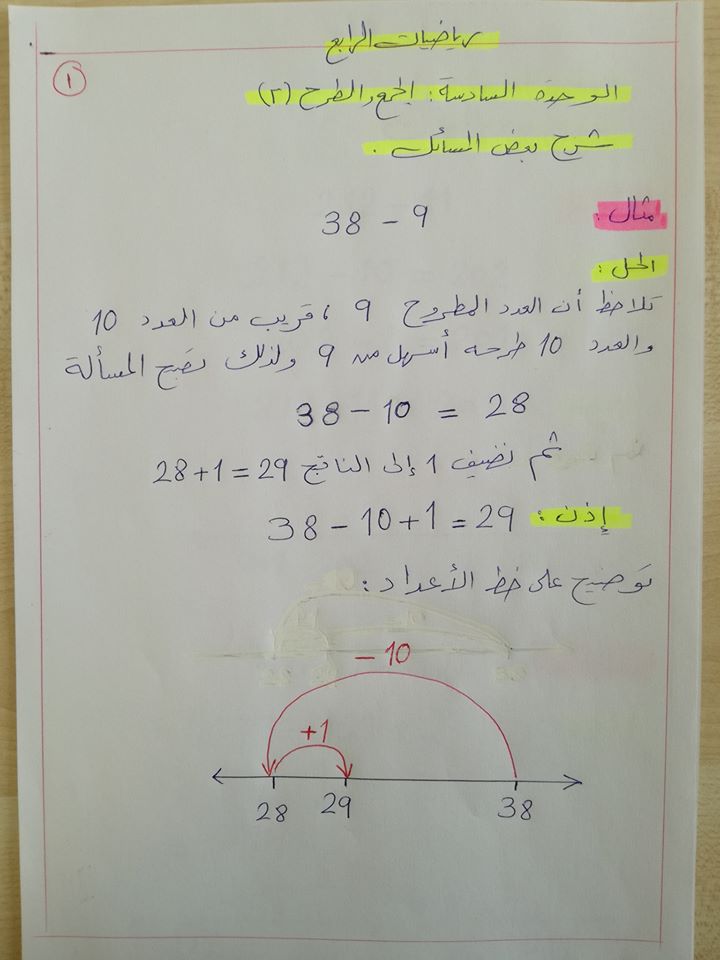 رياضيات الرابع
١
الوحدة السادسة: الجمع والطرح (٢)
شرح بعض المسائل.
مثال: 38 - 9
الحل:
تلاحظ أن العدد المطروح 9 ، قريب من العدد 10
والعدد 10 طرحه أسهل من 9 ولذلك تصبح المسألة
38 - 10 = 28
ثم نضيف 1 إلى الناتج 28+1=29
إذن: 38-10+1=29
توضيح على خط الأعداد:
-10
+1
28 29 38